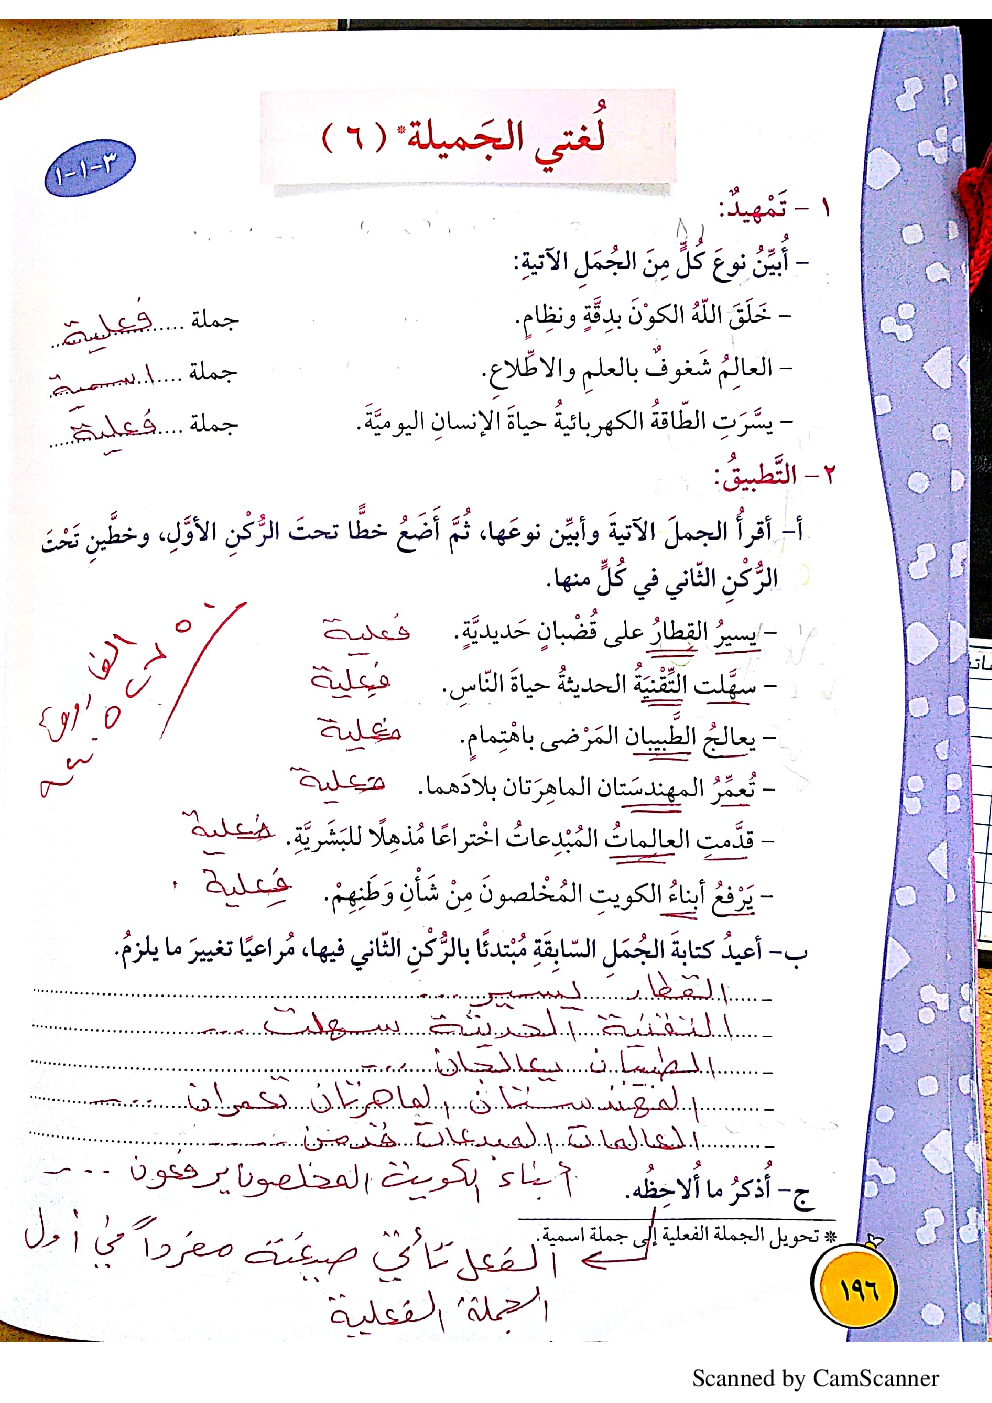 لُغتي الجَميلة* (٦)
٣-١-١
١ - تَمْهيدٌ:
- أُبيِّنُ نوعَ كُلٍّ مِنَ الجُمَلِ الآتيةِ:
- خَلَقَ اللّهُ الكوْنَ بدِقَّةٍ ونظِامٍ. جملة ...... فعلية
- العالِمُ شَغوفٌ بالعلمِ والاطّلاعِ. جملة .... اسمية
- يسَّرَتِ الطّاقةُ الكهربائيةُ حياةَ الإنسانِ اليوميَّةَ. جملة .... فعلية
٢- التَّطبيقُ:
أ- أقرأُ الجملَ الآتيةَ وأبيِّن نوعَها، ثُمَّ أَضَعُ خطًّا تحتَ الرُّكْنِ الأوَّلِ، وخطَّينِ تَحْتَ
الرُّكْنِ الثّاني في كُلٍّ منها.
- يسيرُ القِطارُ على قُضْبانٍ حَديديَّةٍ. فعلية
- سهَّلت التِّقْنيَةُ الحديثةُ حياةَ النّاسِ. فعلية
- يعالجُ الطَّبيبان المَرْضى باهْتِمامٍ. فعلية
- تُعمِّرُ المهندسَتان الماهِرَتان بلادَهما. فعلية
- قدَّمتِ العالِماتُ المُبْدعاتُ اخْتراعًا مُذهِلًا للبَشَريَّةِ. فعلية
- يَرْفعُ أبناءُ الكويتِ المُخْلصونَ مِنْ شَأْنِ وَطَنِهِمْ. فعلية
ب- أعيدُ كتابةَ الجُمَلِ السّابِقَةِ مُبْتدئًا بالرُّكْنِ الثّاني فيها، مُراعيًا تغييرَ ما يلزمُ.
- القطار يسير ...
- التقنية الحديثة سهلت ...
- الطبيبان يعالجان ...
- المهندستان الماهرتان تعمران ...
- العالمات المبدعات قدمن ...
أبناء الكويت المخلصون يرفعون ...
ج- أُذكرُ ما أُلاحِظُه.
* تحويل الجملة الفعلية إلى جملة اسمية.
الفعل تأتي صيغته مفرداً في أول
الجملة الفعلية
١٩٦
Scanned by CamScanner